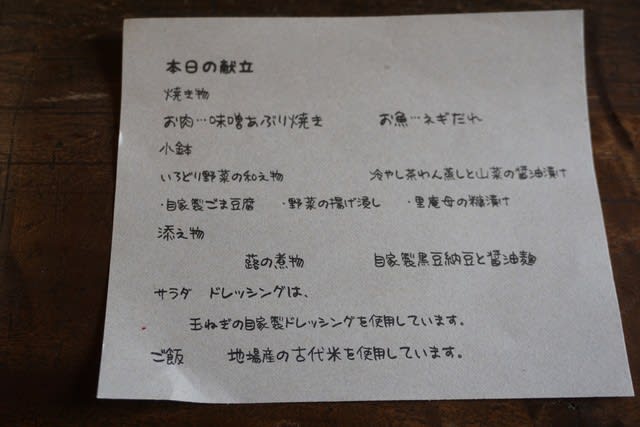 本日の献立
焼き物
お肉…味噌あぶり焼き お魚…ネギだれ
小鉢
いろどり野菜の和え物 冷やし茶わん蒸しと山菜の醤油漬け
・自家製ごま豆腐 ・野菜の揚げ浸し ・里庵母の糠漬け
添え物
蕗の煮物 自家製黒豆納豆と醤油麹
サラダ ドレッシングは、
玉ねぎの自家製ドレッシングを使用しています。
ご飯 地場産の古代米を使用しています。